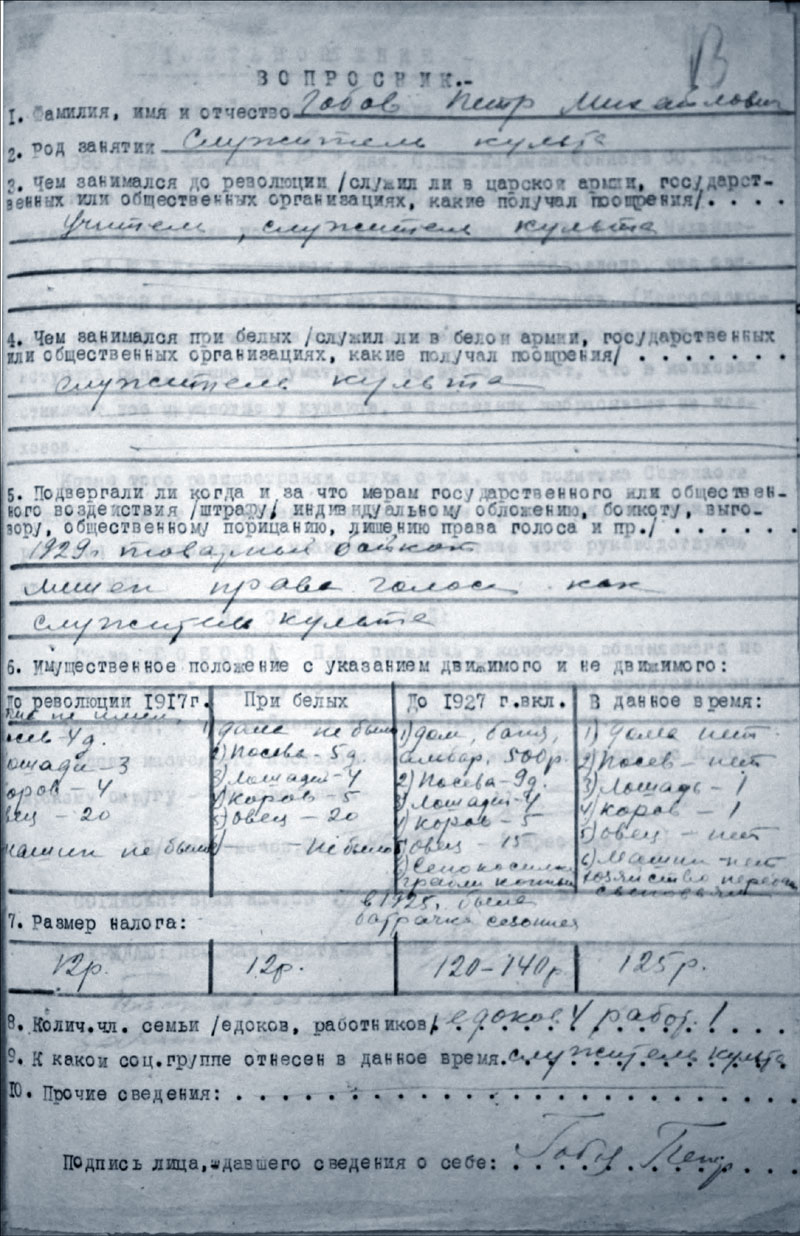 ВОПРОСНИК.-
1. Фамилия, имя и отчество Гобов Петр Михайлович
2. Род занятий Служитель культа
3. Чем занимался до революции /служил ли в царской армии, государст-
венных или общественных организациях, какие получал поощрения/. . . .
Учитель, служитель культа
4. Чем занимался при белых /служил ли в белой армии, государственных
или общественных организациях, какие получал поощрения/ . . . . . . .
служитель культа
5. Подвергали ли когда и за что мерам государственного или обществен-
ного воздействия /штрафу, индивидуальному обложению, бойкоту, выго-
вору, общественному порицанию, лишению права голоса и пр./ . . . . . .
1929г товарный бойкот
лишен права голоса как
служитель культа
6. Имущественное положение с указанием движимого и не движимого:
До революции 1917г. При белых До 1927 г.вкл. В данное время:
не имел
посев-4д.
лошади-3
коров-4
овец-20
машин не было
1) дома не было
2) Посева-5д
3) Лошадей-4
4) Коров-5
5) Овец-20
Не было
1) дом, баня,
амбар. 500р
2) Посева-9д.
3) Лошадей-4
4) Коров-5
5) Овец-15
6) Сенокосилка
грабли конные
в 1925г. была
батрачка сезонная
1) Дома нет
2) Посев-нет
3) Лошадь-1
4) Коров-1
5) Овец-нет
6) Машин-нет
хозяйство передал
сыновьям
7. Размер налога:
12р. 12р. 120-140р 125р.
8. Колич.чл. семьи /едоков, работников/ едоков 4 работ. 1
9. К какой соц.группе отнесен в данное время. служитель культа
10. Прочие сведения: . . . . . . . . . . . . . . . . . . . . . . .
Подпись лица, давшего сведения о себе: Гобов Петр